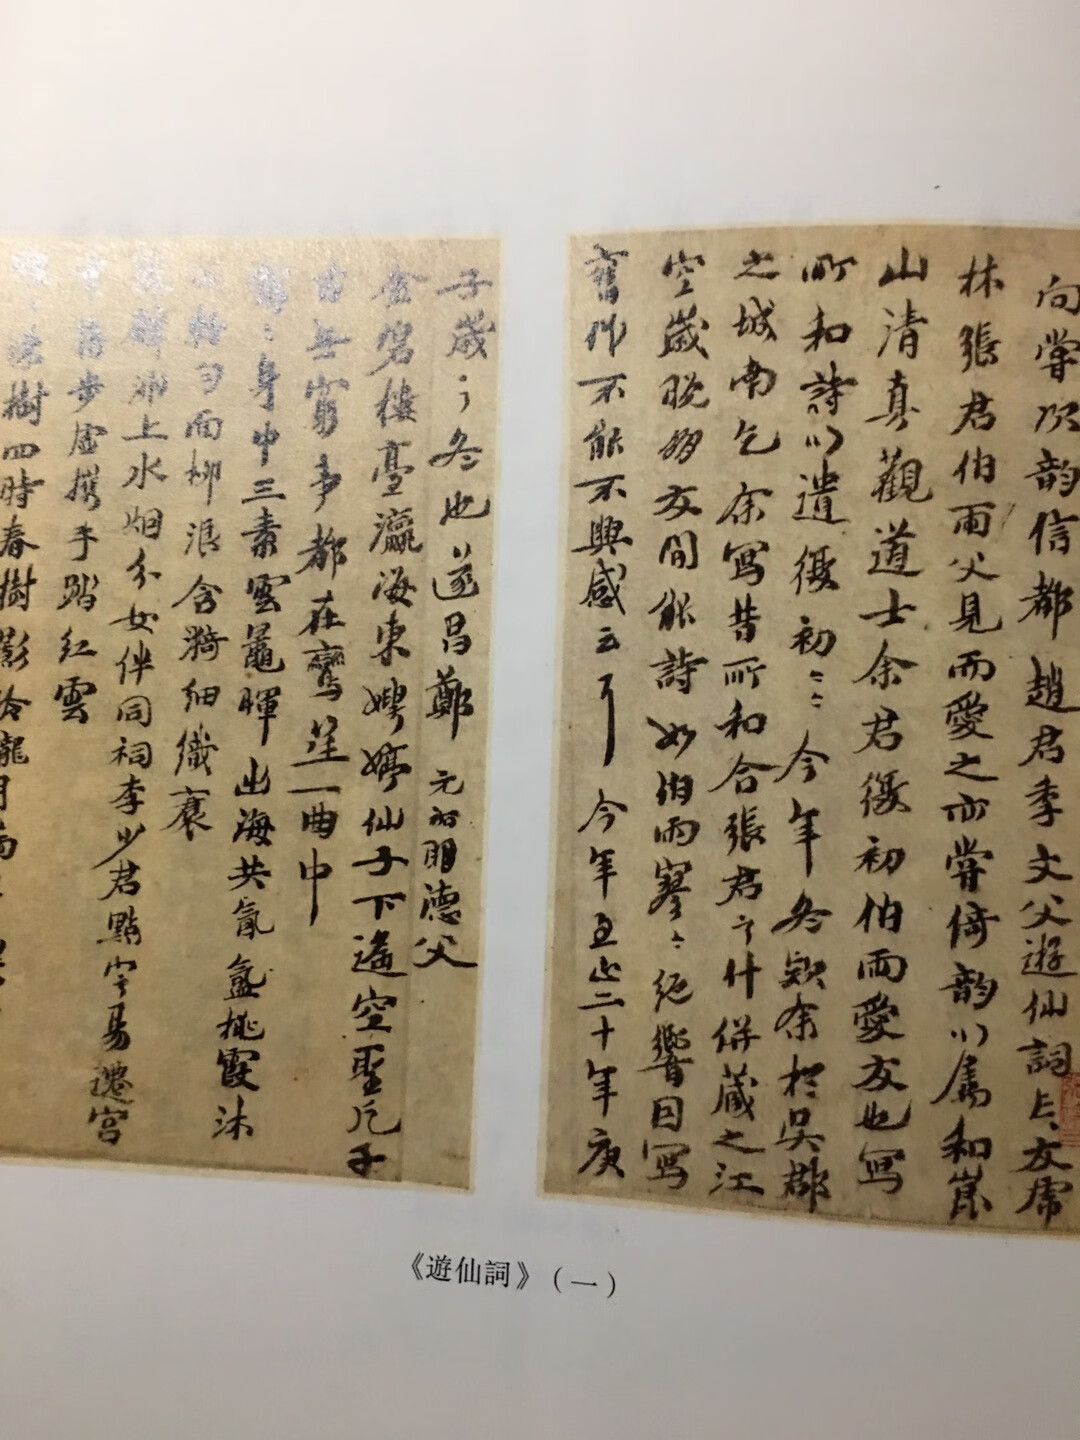 向嘗次韵信都趙君季文父遊仙詞上友虎
林張君伯雨父見而愛之亦嘗倚韵以属和崑
山清真觀道士余君復初伯雨愛友也寫
所和詩以遺復初復初今年冬欵余於吳郡
之城南乞余寫昔所和合張君之什併蔵之江
空歲晚朋友間能詩如伯雨寥寥絕響因寫
舊作不能不興感云耳今年至正二十年庚
子歲之冬也遂昌鄭元祐明德父
金碧樓臺瀛海東娉婷仙子下遙空聖凡千
古無窮事都在鸞笙一曲中
身中三素雲鼉暉出海共氤氳桃霞沐
面柳浪含漪細織裠
上水烟分女伴同祠李少君點字易遷宮
步虛攜手踏紅雲
樹四時春樹影冷龍
《遊仙詞》（一）